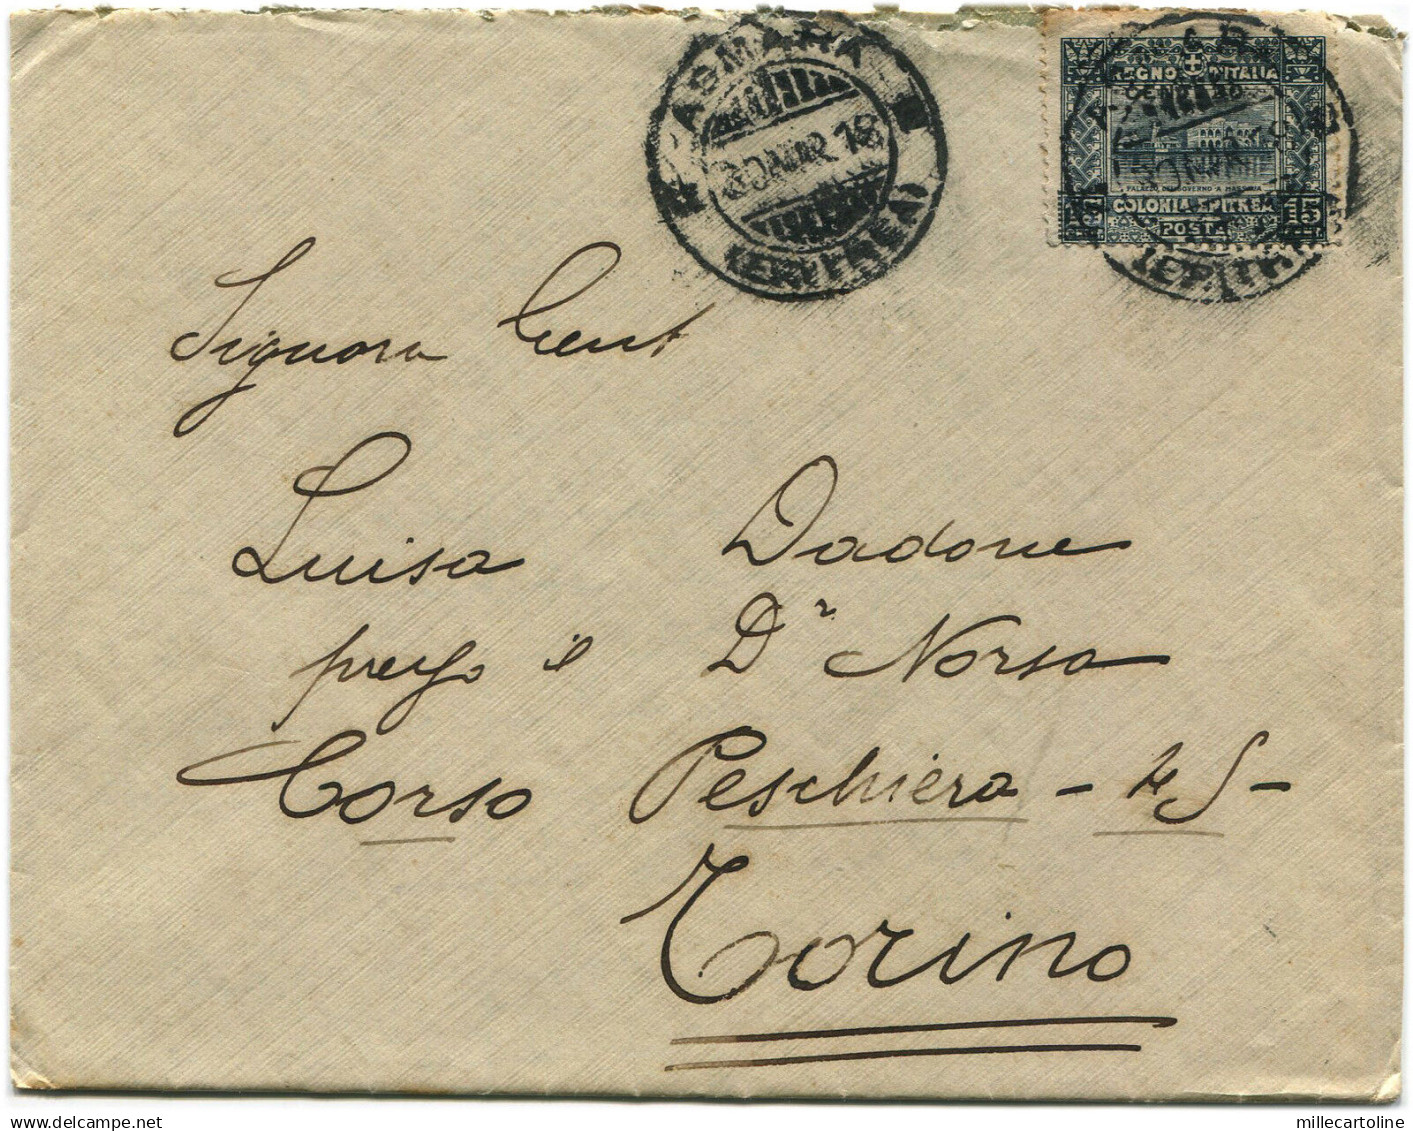 ASMARA
30 MAR 18
(ERITREA)
REGNO D'ITALIA
PALAZZO DEL GOVERNO A MASSAUA
15 COLONIA ERITREA 15
POSTA
Signora Gent
Luisa Dadone
presso il Dr Norsa
Corso Peschiera -
Torino
millecartoline